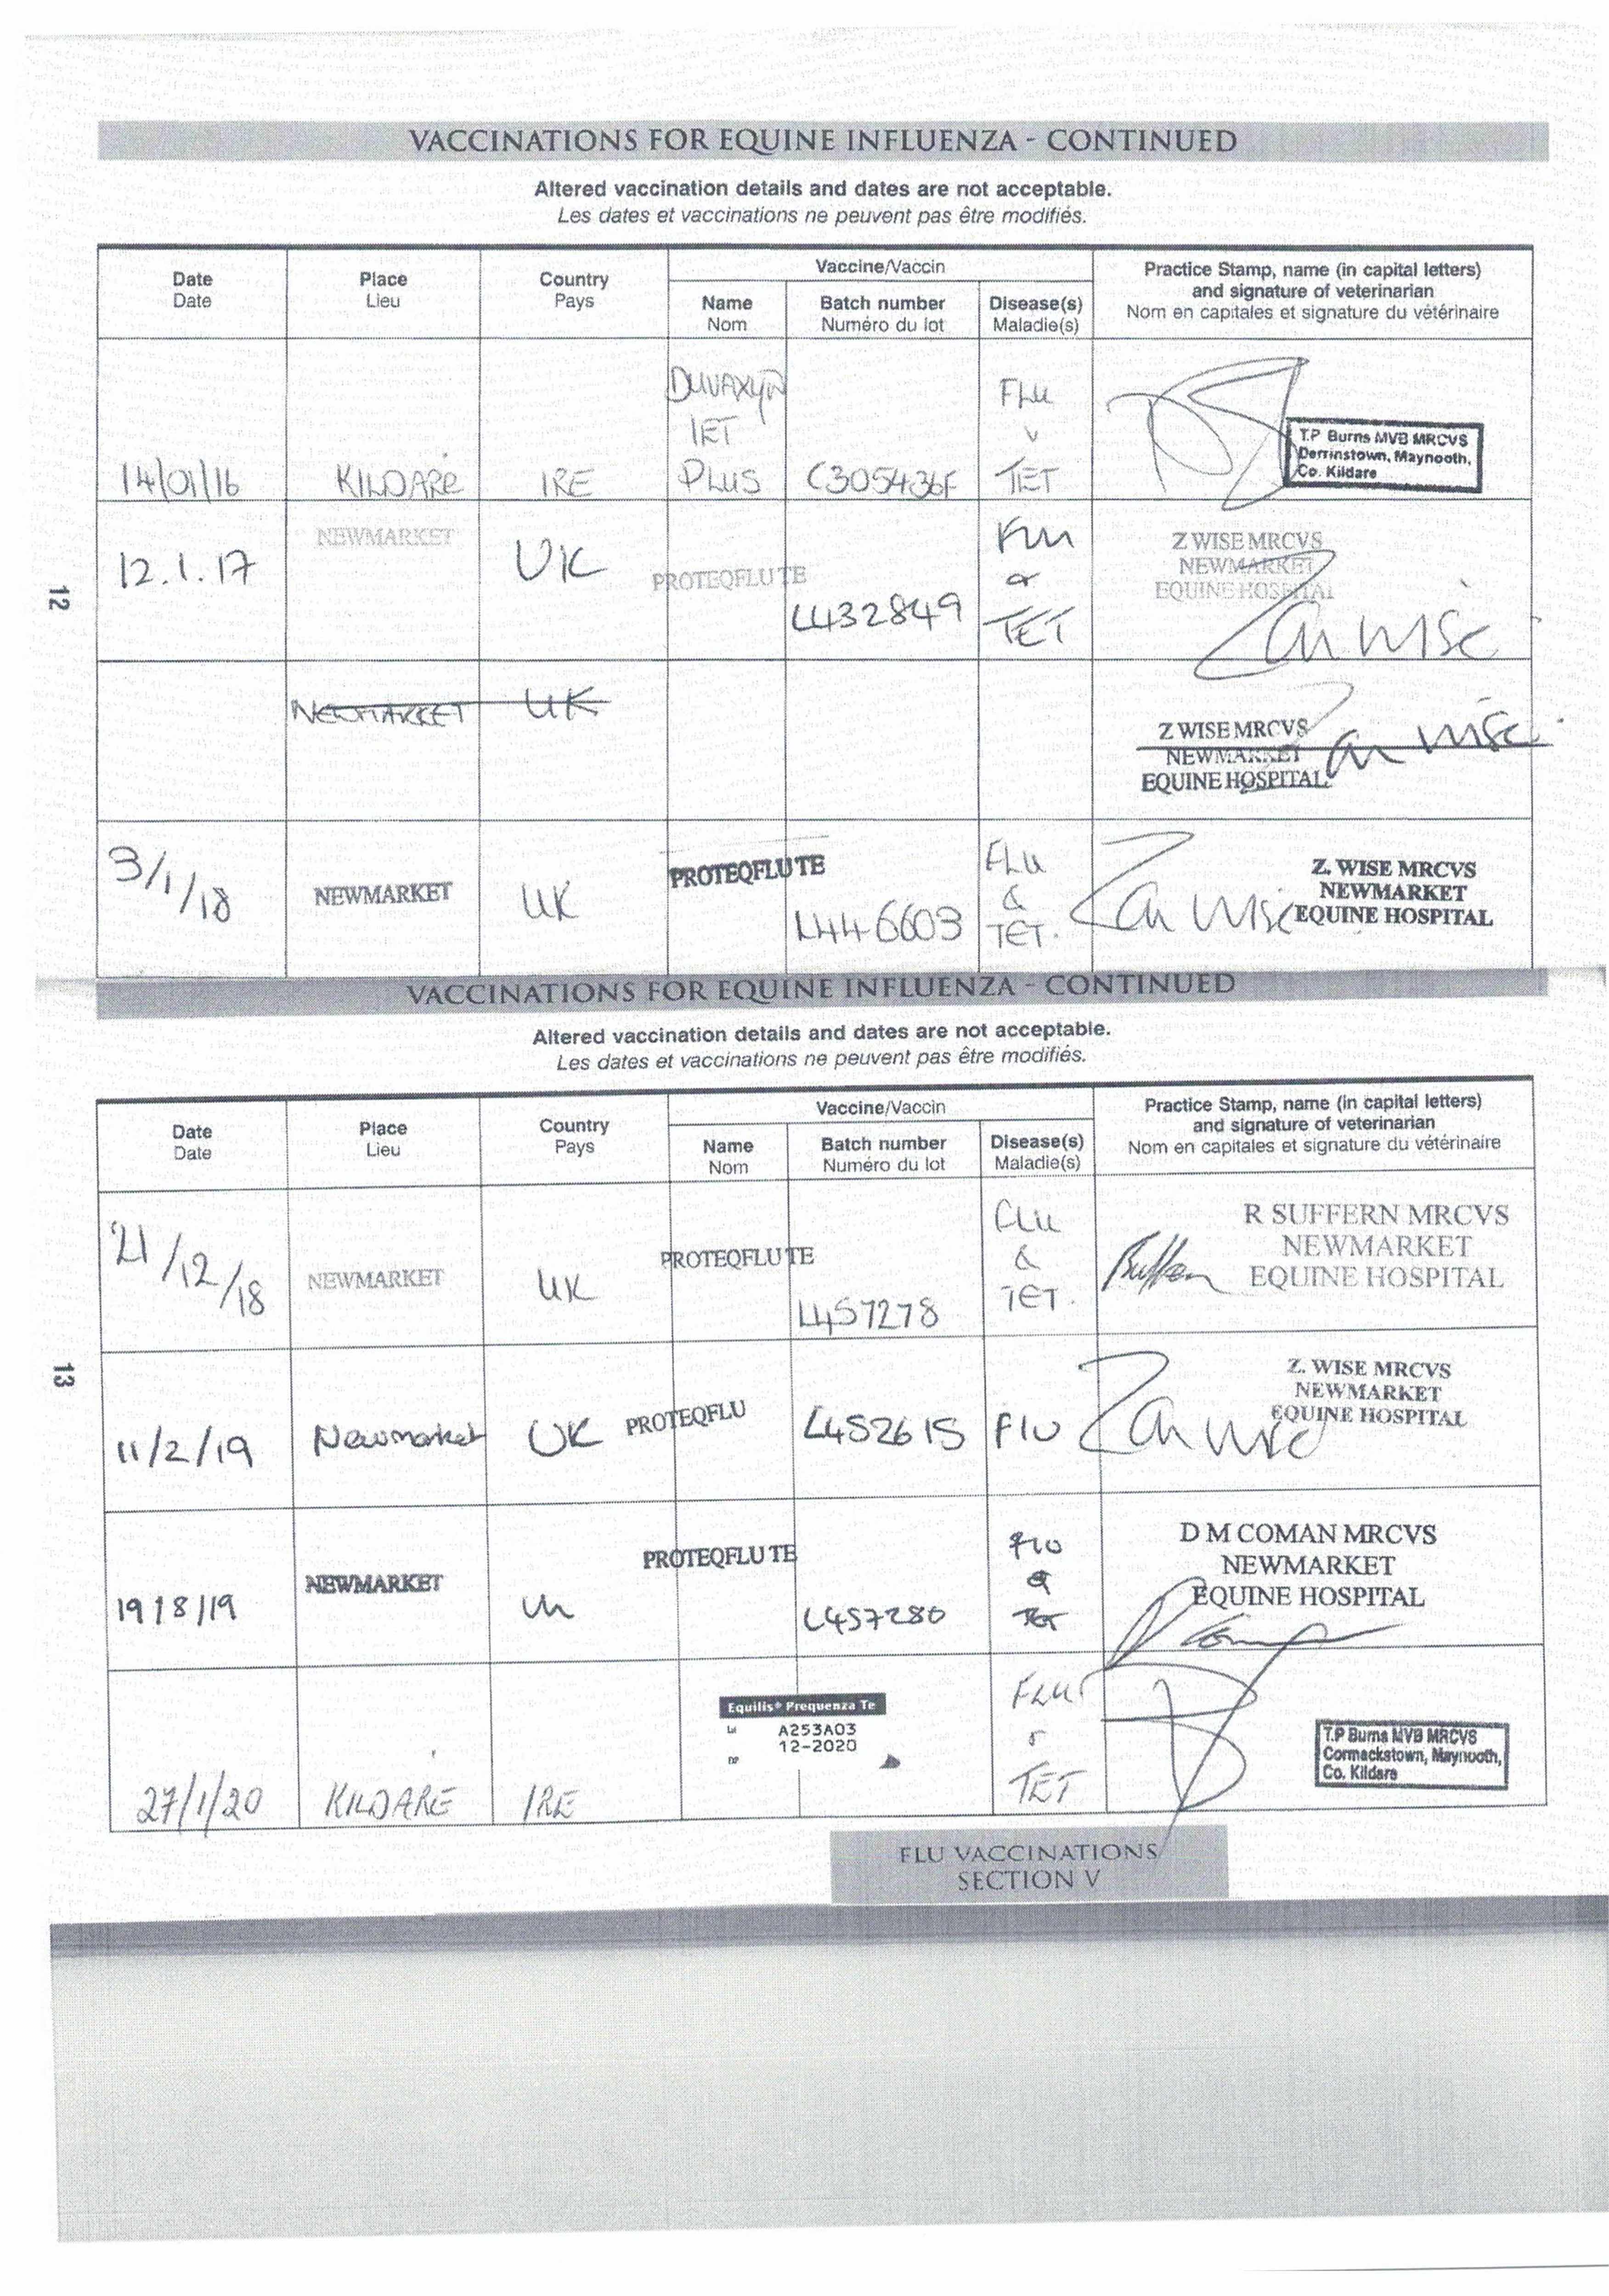 VACCINATIONS FOR EQUINE INFLUENZA - CONTINUED
Altered vaccination details and dates are not acceptable.
Les dates et vaccinations ne peuvent pas être modifiés.
Date
Date
Place
Lieu
Country
Pays
Vaccine/Vaccin
Name
Nom
Batch number
Numéro du lot
Disease(s)
Maladie(s)
Practice Stamp, name (in capital letters)
and signature of veterinarian
Nom en capitales et signature du vétérinaire
14/01/16
KILDARE
IRE
DUVAXYN
IET
PLUS
C305436F
FLU
TET
T.P Burns MVB MRCVS
Derrinstown, Maynooth,
Co. Kildare
12.1.17
NEWMARKET
UK
PROTEQFLU TE
L432849
Flu
&
TET
Z WISE MRCVS
NEWMARKET
EQUINE HOSPITAL
Zan Wise
12
NEWMARKET
UK
Z WISE MRCVS
NEWMARKET
EQUINE HOSPITAL
Zan Wise
3/1/18
NEWMARKET
UK
PROTEQFLU TE
L446603
FLU
&
TET.
Zan Wise
Z. WISE MRCVS
NEWMARKET
EQUINE HOSPITAL
VACCINATIONS FOR EQUINE INFLUENZA - CONTINUED
Altered vaccination details and dates are not acceptable.
Les dates et vaccinations ne peuvent pas être modifiés.
Date
Date
Place
Lieu
Country
Pays
Vaccine/Vaccin
Name
Nom
Batch number
Numéro du lot
Disease(s)
Maladie(s)
Practice Stamp, name (in capital letters)
and signature of veterinarian
Nom en capitales et signature du vétérinaire
21/12/18
NEWMARKET
UK
PROTEQFLU TE
L457278
FLU
&
TET.
R SUFFERN MRCVS
NEWMARKET
EQUINE HOSPITAL
13
11/2/19
Newmarket
UK
PROTEQFLU
L452615
Flu
Zan Wise
Z. WISE MRCVS
NEWMARKET
EQUINE HOSPITAL
19/8/19
NEWMARKET
UK
PROTEQFLU TE
L457280
Flu
&
TET
D M COMAN MRCVS
NEWMARKET
EQUINE HOSPITAL
27/1/20
KILDARE
IRE
Equilis® Prequenza Te
A253A03
12-2020
FLU
TET
T.P Burns MVB MRCVS
Cormackstown, Maynooth,
Co. Kildare
FLU VACCINATIONS
SECTION V